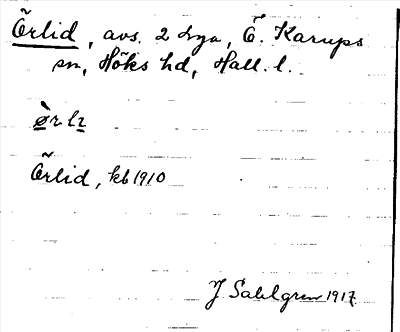 Örlid, avs. 2 Lya, Ö. Karups
sn, Höks hd, Hall. l.
ø̀rlı
Örlid, kb 1910
J Sahlgren 1917